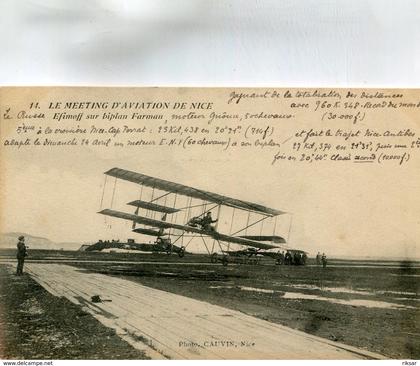 gagnant de la totalisation des distances
14. LE MEETING D'AVIATION DE NICE
avec 960 K 348 - Record du monde
Le Russe Efimoff sur biplan Farman, moteur Gnôme, 50 chevaux (30.000 f.)
5ème à la croisière Nice. Cap Ferrat : 23 Kil, 438 en 20'21" (700 f)
et fait le trajet Nice Antibes
adapte le Dimanche 24 Avril un moteur E.N.V (60 chevaux) à son biplan,
27 Kil, 374 en 21'31", puis une 2e
fois en 20'44". Classé second (10000 f)
Photo. CAUVIN, Nice
riksar